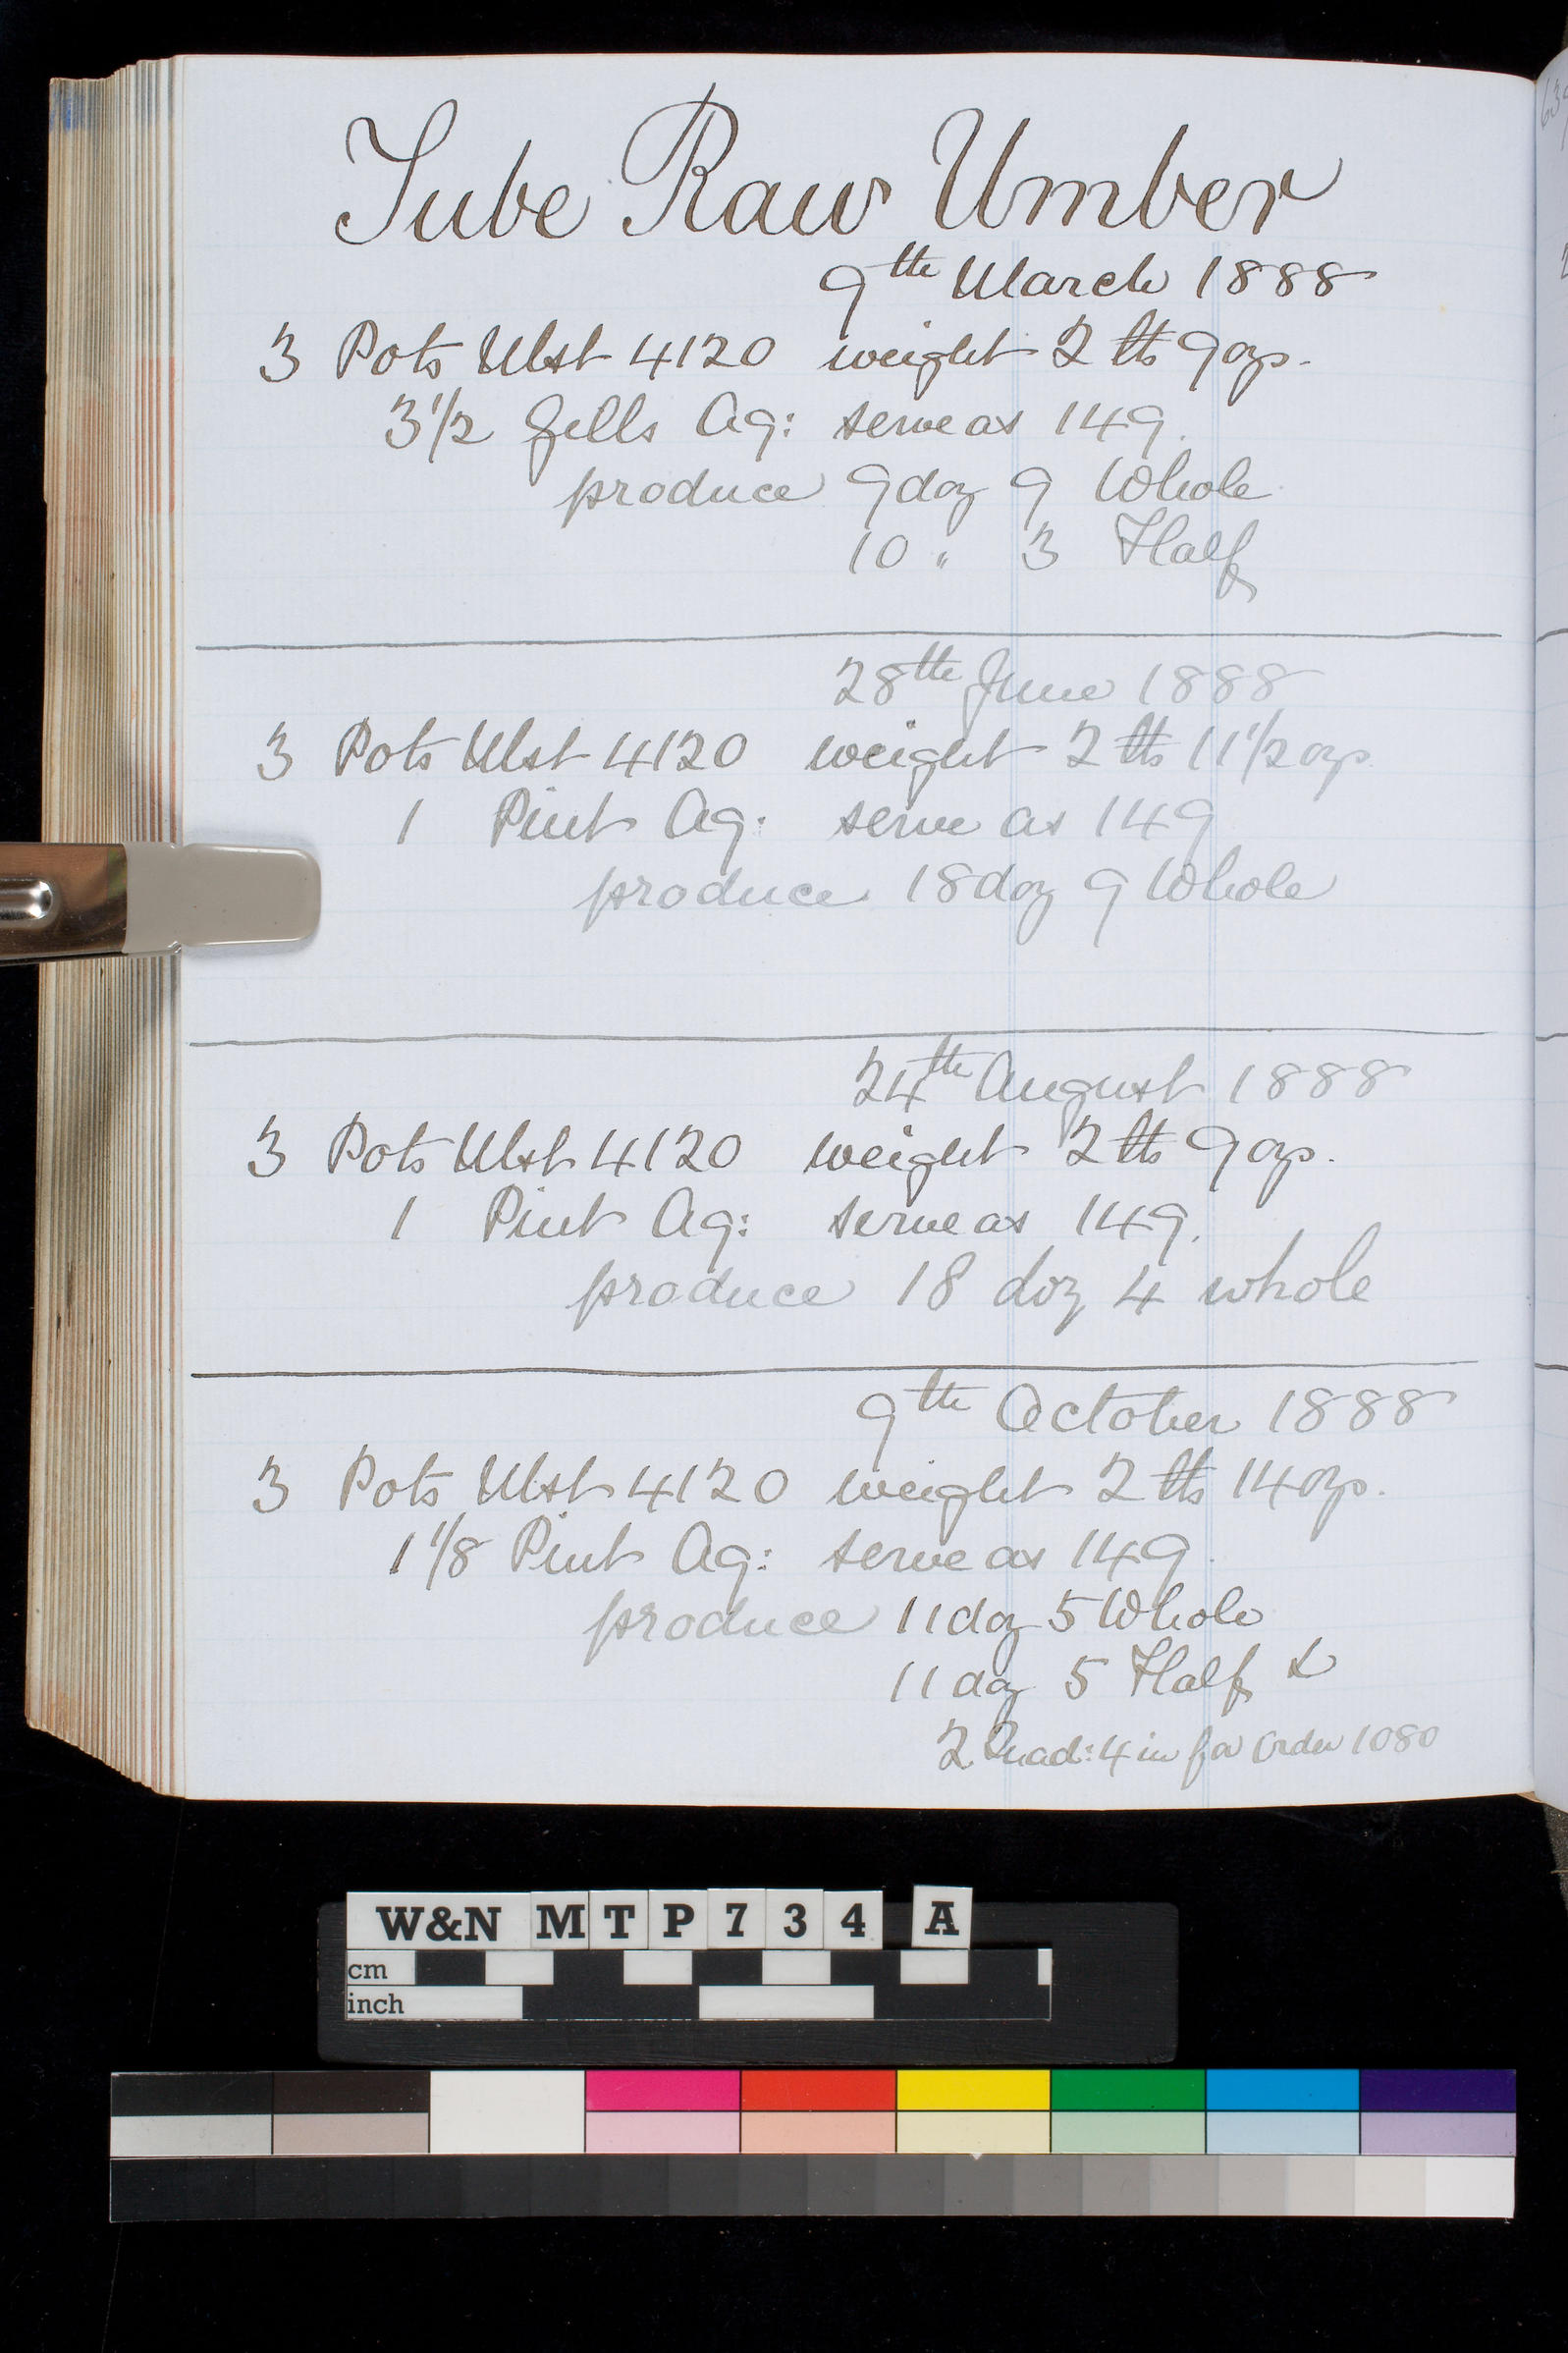 Tube Raw Umber
9th March 1888
3 Pots Ulst 4120 weight 2 lb 9 ozs.
3 1/2 Gills Ag: serve as 149.
produce 9 doz 9 Whole
10 " 3 Half
28th June 1888
3 Pots Ulst 4120 weight 2 lb 11 1/2 ozs
1 Pint Ag: serve as 149
produce 18 doz 9 Whole
24th August 1888
3 Pots Ulst 4120 weight 2 lb 9 ozs.
1 Pint Ag: serve as 149.
produce 18 doz 4 whole
9th October 1888
3 Pots Ulst 4120 weight 2 lb 14 ozs.
1 1/8 Pint Ag: serve as 149.
produce 11 doz 5 Whole
11 doz 5 Half &
2 Quad: 4 in for Order 1080
W&N MTP734 A
cm
inch